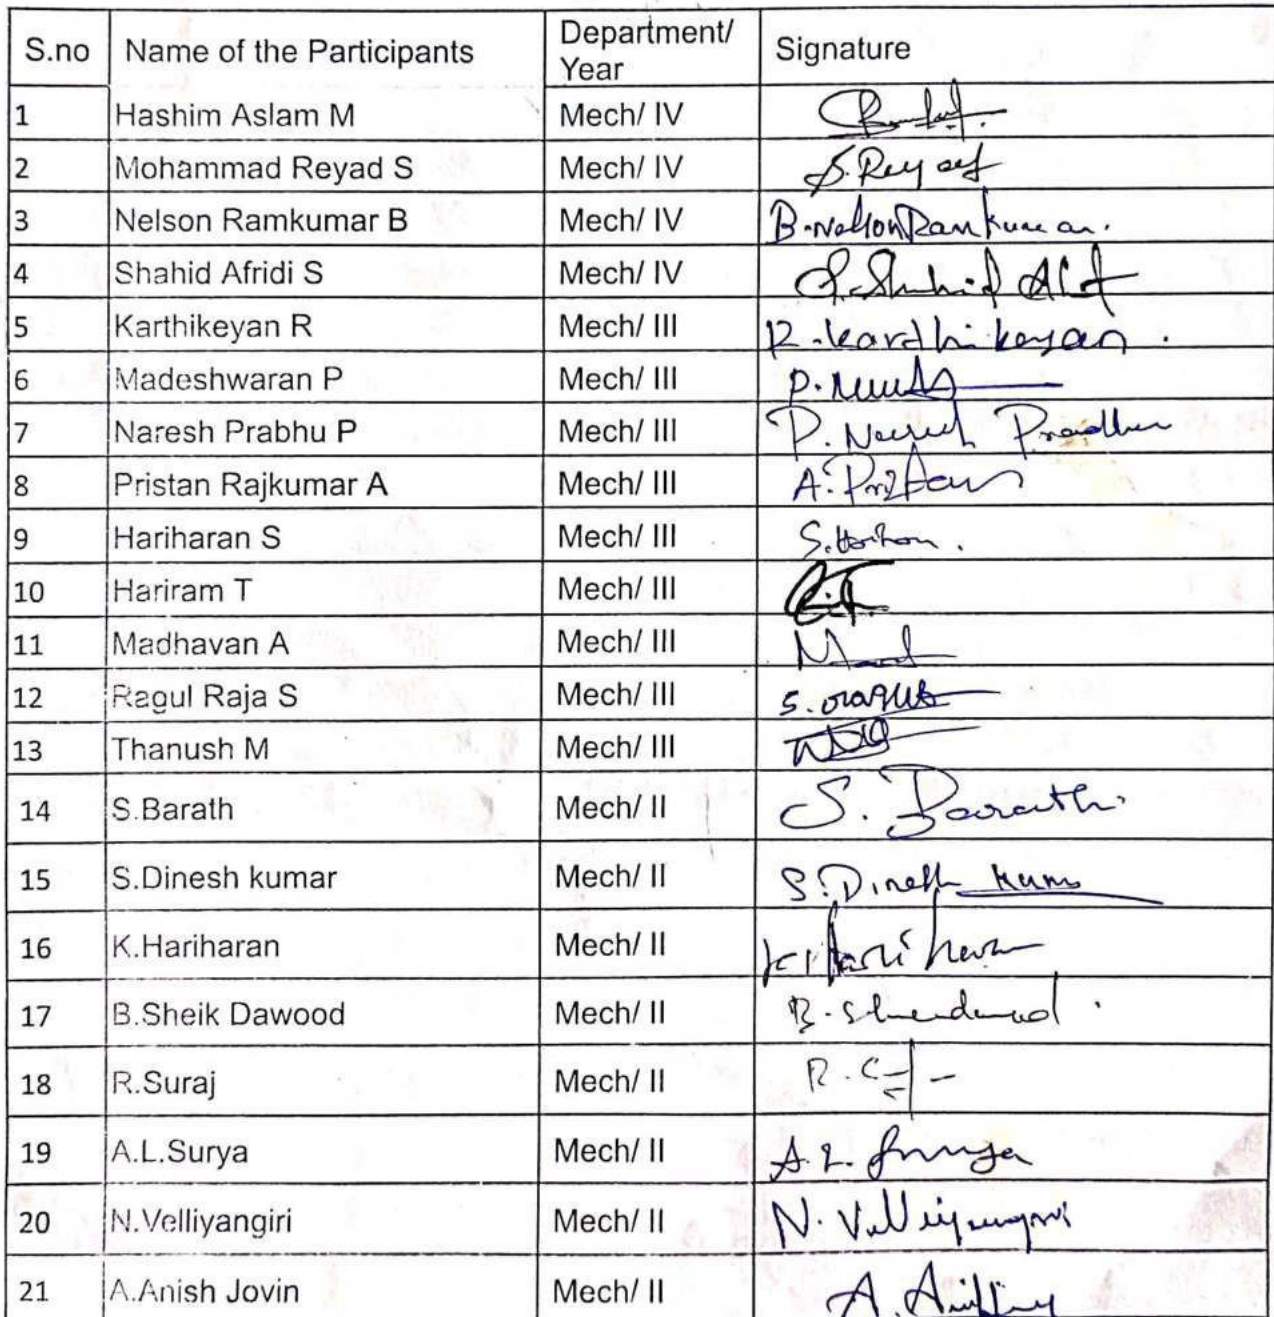 S.no Name of the Participants Department/ Year Signature
1 Hashim Aslam M Mech/ IV
2 Mohammad Reyad S Mech/ IV S.Reyad
3 Nelson Ramkumar B Mech/ IV B.Nelson Ramkumar.
4 Shahid Afridi S Mech/ IV S.Shahid
5 Karthikeyan R Mech/ III R.Karthikeyan.
6 Madeshwaran P Mech/ III P.
7 Naresh Prabhu P Mech/ III P.
8 Pristan Rajkumar A Mech/ III A.Pristan
9 Hariharan S Mech/ III S.
10 Hariram T Mech/ III
11 Madhavan A Mech/ III
12 Ragul Raja S Mech/ III S.
13 Thanush M Mech/ III
14 S.Barath Mech/ II S. Barath
15 S.Dinesh kumar Mech/ II S.Dinesh
16 K.Hariharan Mech/ II K.Hariharan
17 B.Sheik Dawood Mech/ II B.
18 R.Suraj Mech/ II R.
19 A.L.Surya Mech/ II A.L. Surya
20 N.Velliyangiri Mech/ II N.Velliyangiri
21 A.Anish Jovin Mech/ II A.